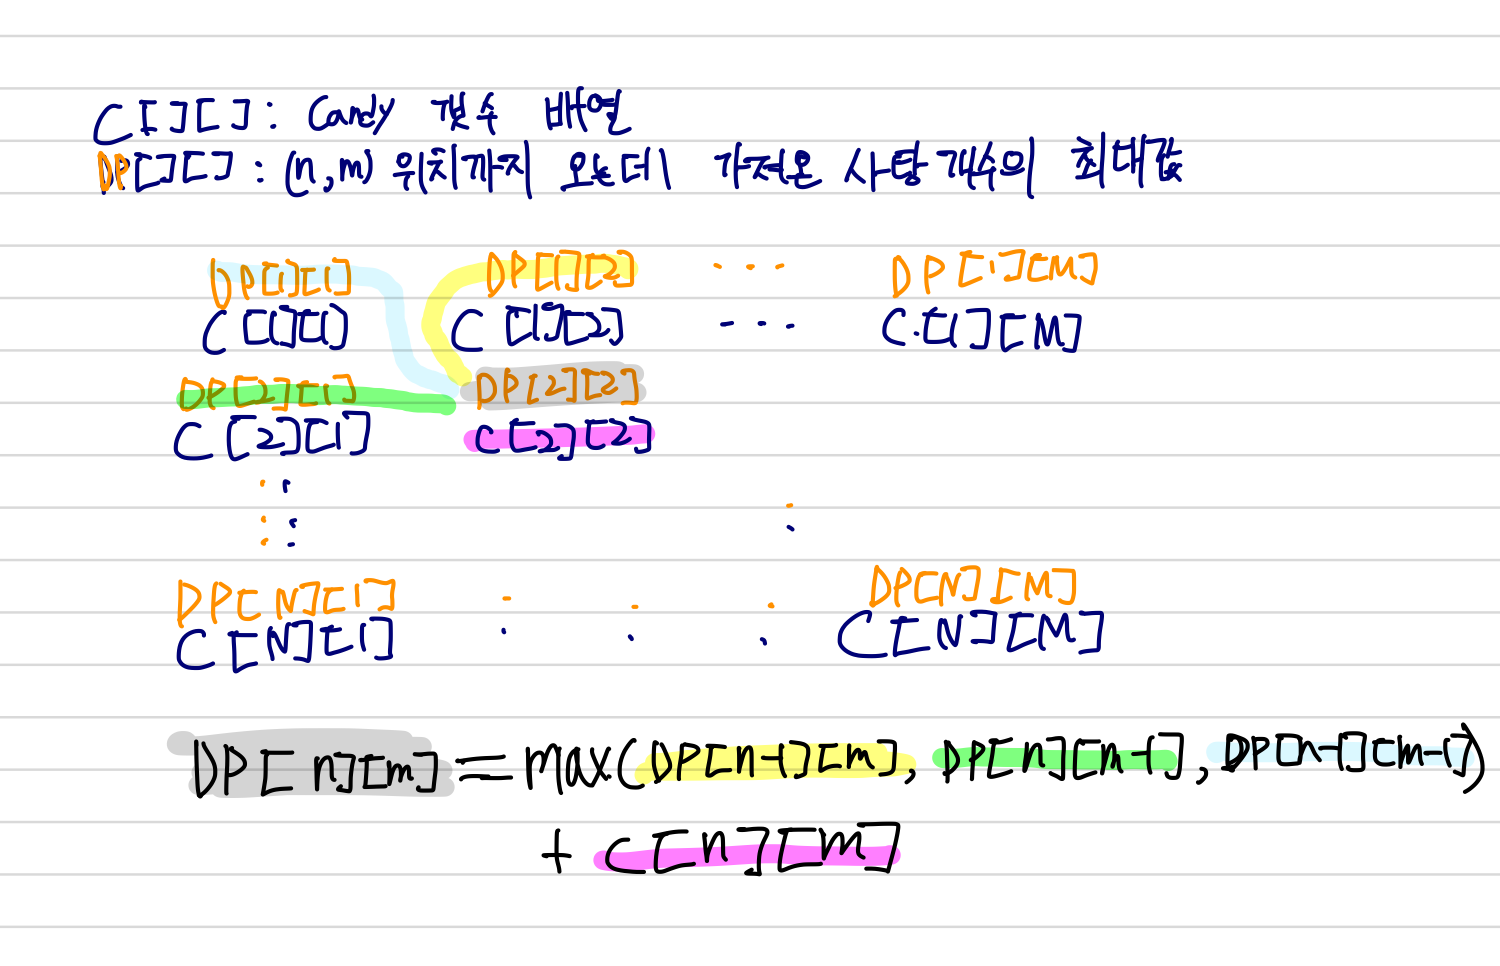 C[][] : Candy 갯수 배열
DP[][] : (n,m) 위치까지 오는데 가져온 사탕개수의 최대값
DP[1][1] DP[1][2] ... DP[1][M]
C[1][1] C[1][2] ... C[1][M]
DP[2][1] DP[2][2]
C[2][1] C[2][2]
DP[N][1] . . . DP[N][M]
C[N][1] . . . C[N][M]
DP[n][m] = max(DP[n-1][m], DP[n][m-1], DP[n-1][m-1])
+ C[n][m]